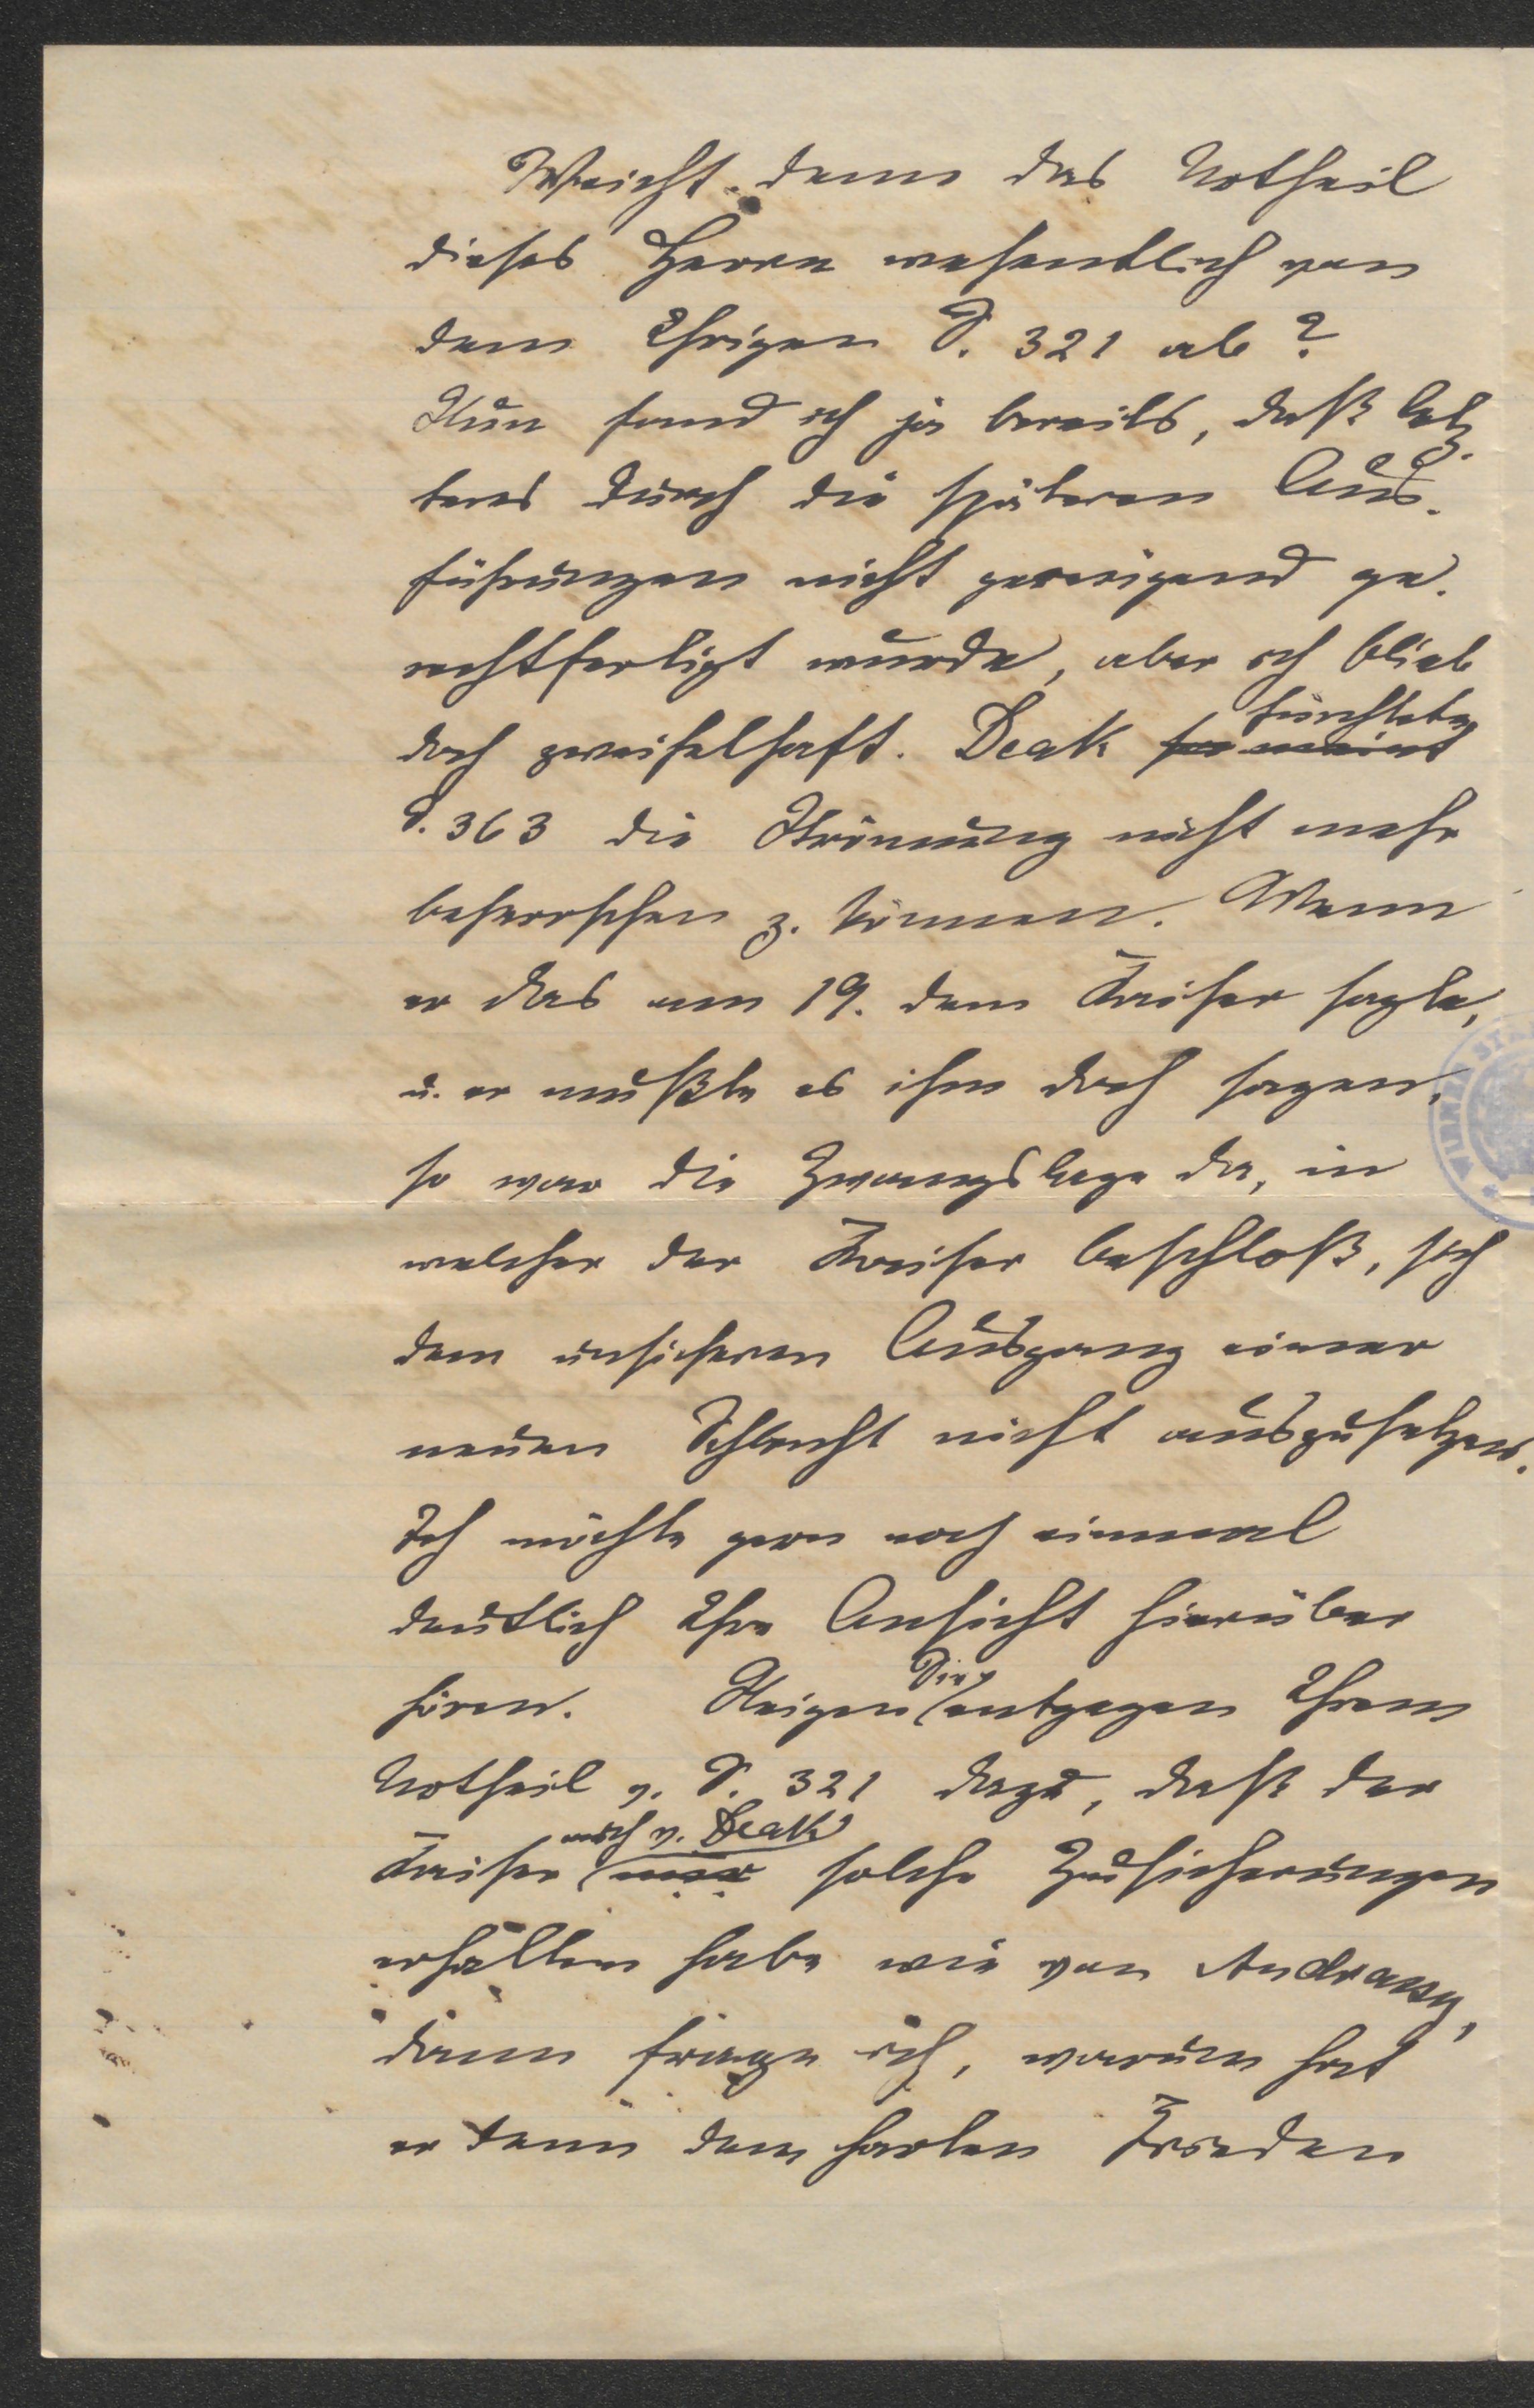 Weicht denn das Urtheil
dieses Herrn wesentlich von
dem Ihrigen S. 321 ab?
Nun fand ich ja bereits, daß letz-
teres durch die späteren Aus-
führungen nicht genügend ge-
rechtfertigt wurde, aber ich blieb
doch zweifelhaft. Deak fürchtete
S. 363 die Strömung nicht mehr
beherrschen z. können. Wenn
er das am 19. dem Kaiser sagte,
u. er mußte es ihm doch sagen,
so war die Zwangslage da, in
welcher der Kaiser beschloß, sich
dem unsicheren Ausgang einer
neuen Schlacht nicht auszusetzen.
Ich möchte gern noch einmal
deutlich Ihre Ansicht hierüber
hören. Neigen Sie entgegen Ihrem
Urtheil v. S. 321 dazu, daß der
Kaiser auch v. Deak solche Zusicherungen
erhalten habe wie von Andrassy,
dann frage ich, warum hat
er denn den harten Frieden
WIENER ST